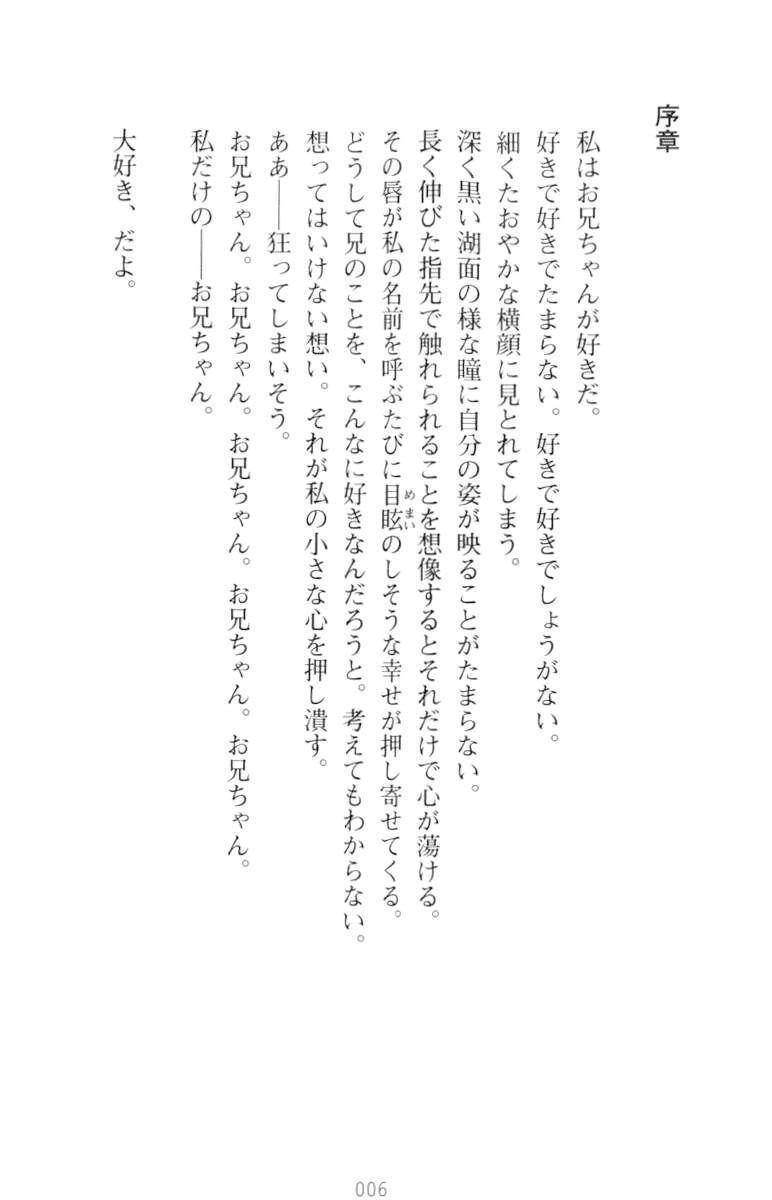 序章
私はお兄ちゃんが好きだ。
好きで好きでたまらない。好きで好きでしょうがない。
細くたおやかな横顔に見とれてしまう。
深く黒い湖面の様な瞳に自分の姿が映ることがたまらない。
長く伸びた指先で触れられることを想像するとそれだけで心が蕩ける。
その唇が私の名前を呼ぶたびに目眩のしそうな幸せが押し寄せてくる。
めまい
どうして兄のことを、こんなに好きなんだろうと。考えてもわからない。
想ってはいけない想い。それが私の小さな心を押し潰す。
ああ――狂ってしまいそう。
お兄ちゃん。お兄ちゃん。お兄ちゃん。お兄ちゃん。お兄ちゃん。
私だけの――お兄ちゃん。
大好き、だよ。
006